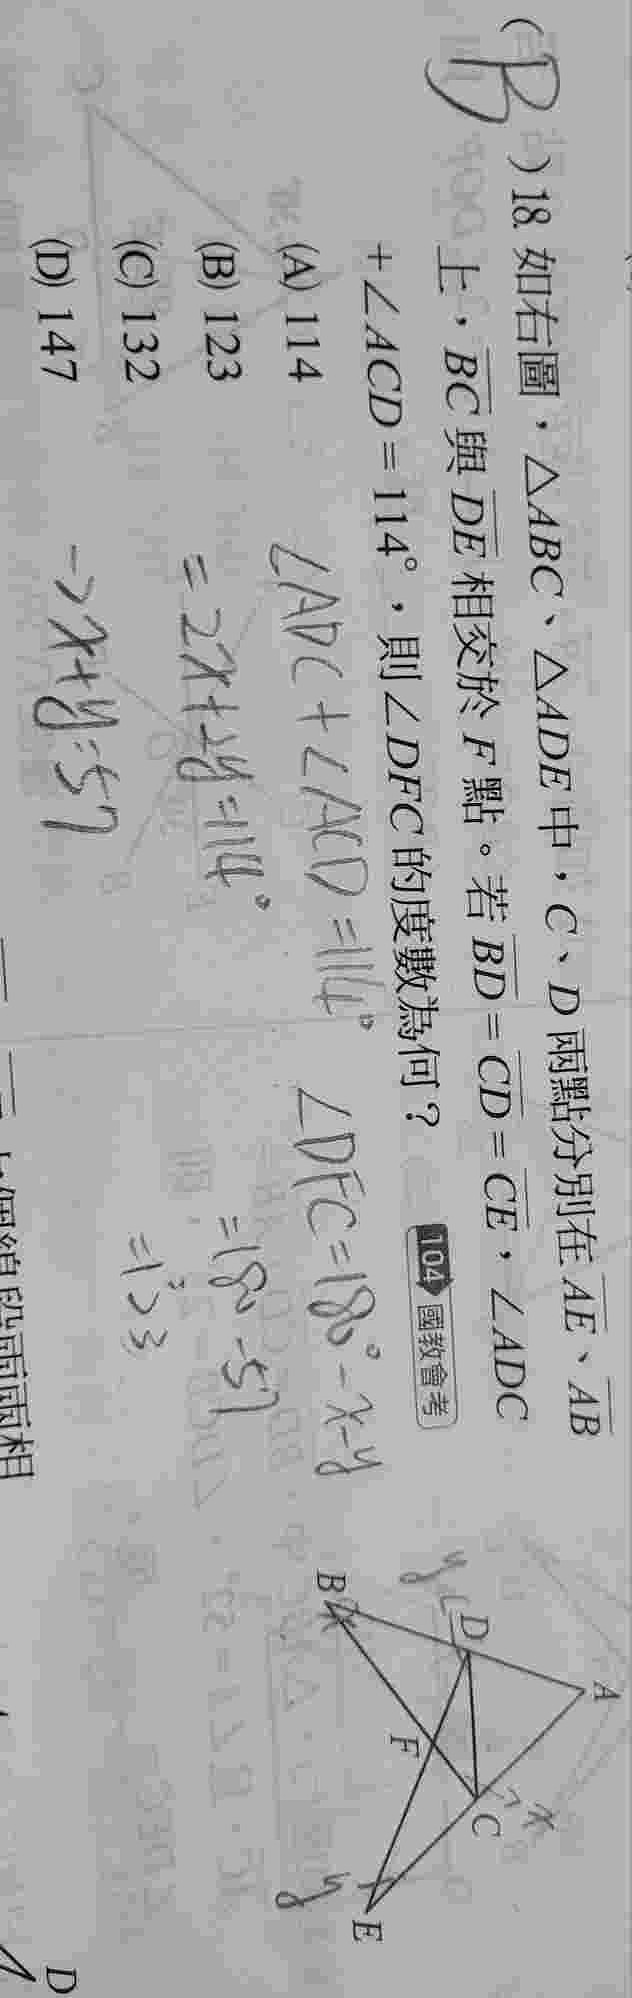 ( B ) 18. 如右圖，△ABC、△ADE 中，C、D 兩點分別在 AE、AB
上，BC 與 DE 相交於 F 點。若 BD = CD = CE，∠ADC
+∠ACD = 114°，則∠DFC 的度數為何？ 104 國教會考
(A) 114
(B) 123
(C) 132
(D) 147
∠ADC + ∠ACD = 114°
= 2x + 2y = 114°
-> x + y = 57
∠DFC = 180° - x - y
= 180 - 57
= 123
A
B
x
D
y
F
C
x
E
y
D